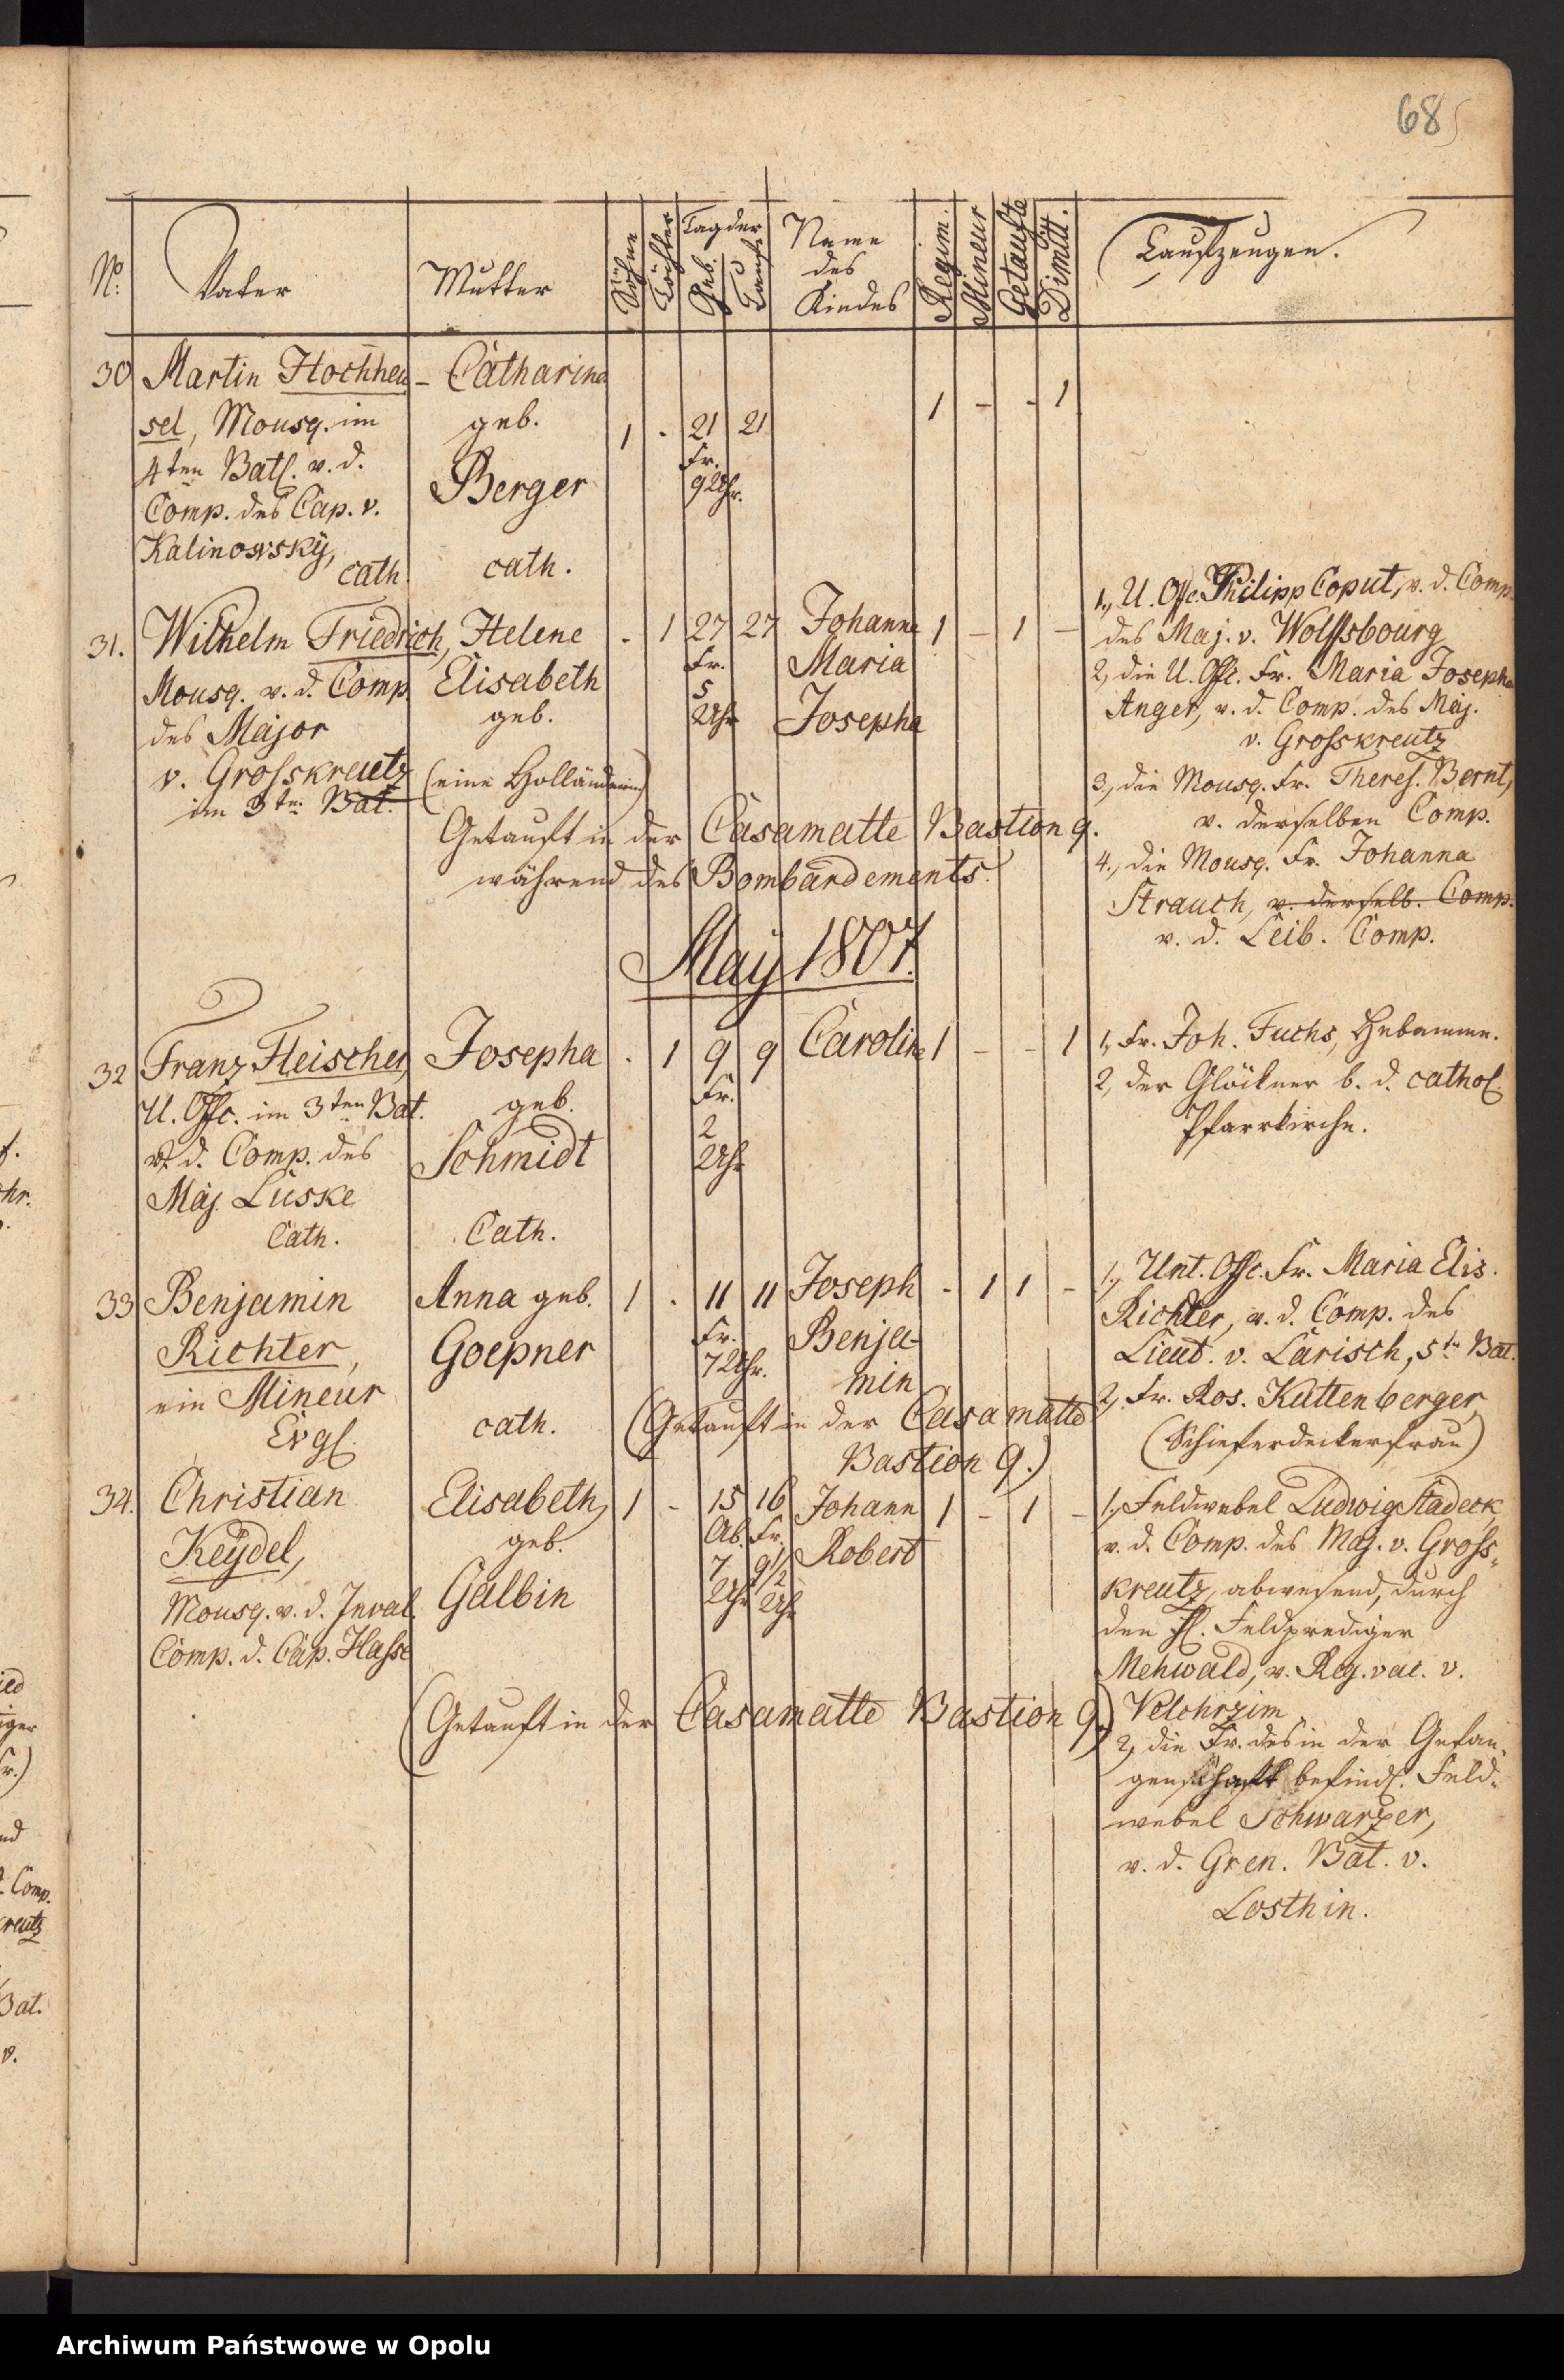 68
No. Vater Mutter Söhne Töchter Tag der Geb. Taufe Name des Kindes Regim. Mineur Getaufte Dimitt. Taufzeugen.
30 Martin Hochheu-
sel, Mousq. im
4ten Batl. v. d.
Comp. des Cap. v.
Kalinowsky,
cath.
Catharina
geb.
Berger
cath.
1 - 21 21
Fr.
9 Uhr.
1 - - 1
31. Wilhelm Friedrich,
Mousq. v. d. Comp.
des Major
v. Grosskreutz
im 3ten Bat.
Helene
Elisabeth
geb.
(eine Holländerin)
- 1 27 27
Fr.
5
Uhr
Johanne
Maria
Josepha
1 - 1 -
1., U. Offc. Philipp Coput, v. d. Comp.
des Maj. v. Wolffsbourg
2, die U. Offc. Fr. Maria Josepha
Anger, v. d. Comp. des Maj.
v. Grosskreutz
3., die Mousq. Fr. Theres. Bernt,
v. derselben Comp.
4., die Mousq. Fr. Johanna
Strauch, v. derselb. Comp.
v. d. Leib. Comp.
Getauft in der Casamatte Bastion 9.
während des Bombardements.
May 1807.
32 Franz Fleischer,
U. Offc. im 3ten Bat.
v. d. Comp. des
Maj. Luske
Cath.
Josepha
geb.
Schmidt
Cath.
- 1 9 9
Fr.
2
Uhr
Caroline
1 - - 1
1, Fr. Joh. Fuchs, Hebamme.
2, der Glöckner b. d. cathol.
Pfarrkirche.
33 Benjamin
Richter,
ein Mineur
Evgl.
Anna geb.
Goepner
cath.
1 - 11 11
Fr.
7 Uhr.
Joseph
Benja-
min
- 1 1 -
(Getauft in der Casamatte
Bastion 9.)
1., Unt. Offc. Fr. Maria Elis.
Richter, v. d. Comp. des
Lieut. v. Larisch, 5tn Bat.
2, Fr. Ros. Kuttenberger,
(Schieferdeckerfrau)
34. Christian
Keydel,
Mousq. v. d. Inval.
Comp. d. Cap. Hasse
Elisabeth,
geb.
Galbin
1 - 15 16
Ab. Fr.
7 9 1/2
Uhr Uhr
Johann
Robert
1 - 1 -
1., Feldwebel Ludwig Stadeck,
v. d. Comp. des Maj. v. Gross-
kreutz, abwesend, durch
den H. Feldprediger
Mehwald, v. Reg. vac. v.
Pelchrzim
2, die Fr. des in der Gefan-
genschaft befindl. Feld-
webel Schwarzer,
v. d. Gren. Bat. v.
Losthin.
(Getauft in der Casamatte Bastion 9.)
Archiwum Państwowe w Opolu